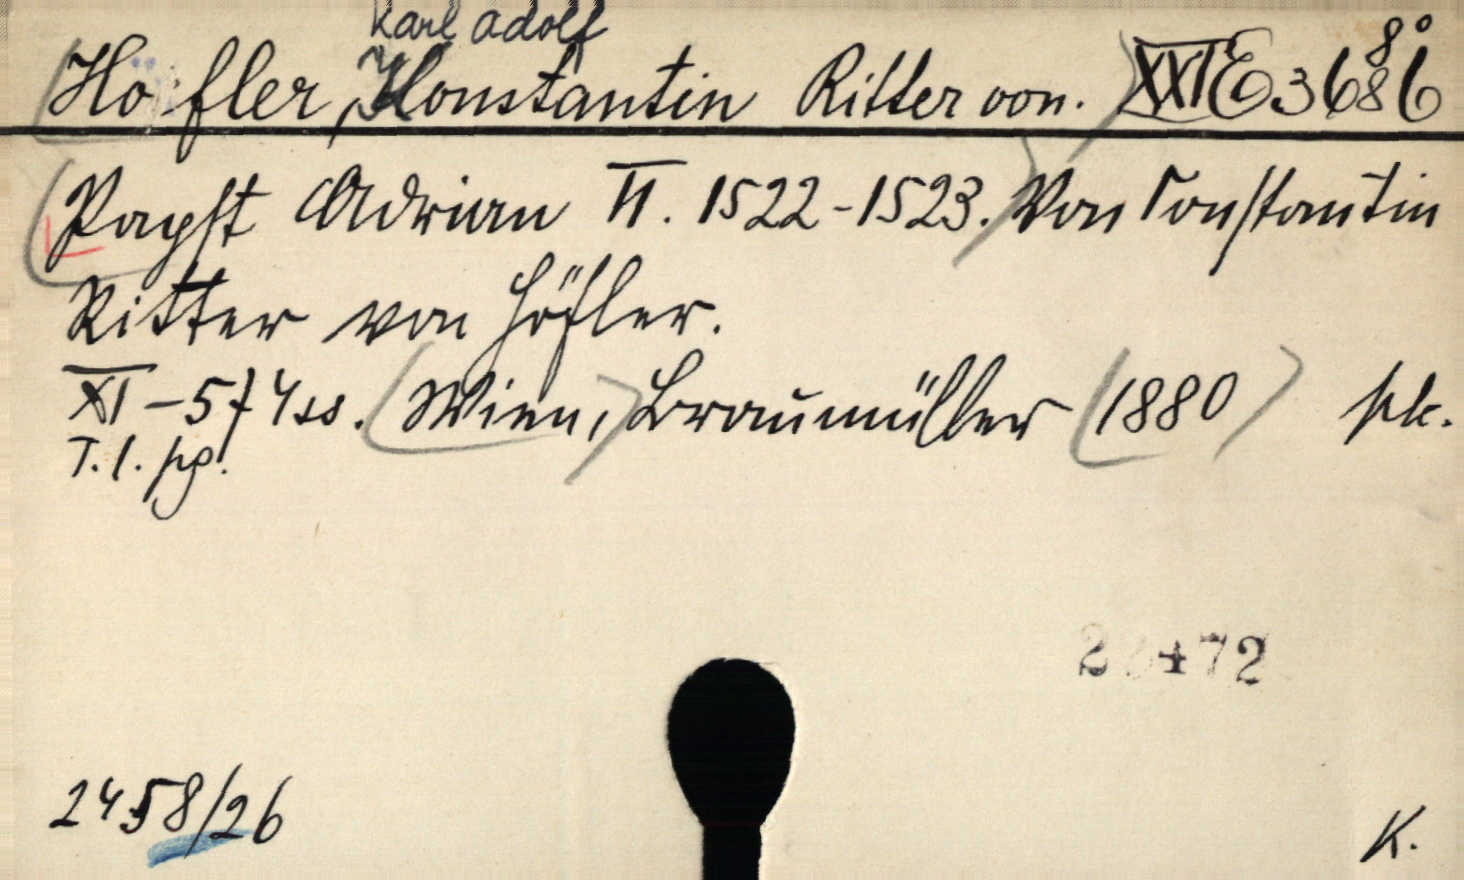 Karl Adolf
Höfler, Konstantin Ritter von. XXI E 3686 8°
Papst Adrian VI. 1522-1523. Von Constantin
Ritter von Höfler.
XI-574 ss. Wien, Braumüller 1880
T. l. pg.
472
2458/26
K.